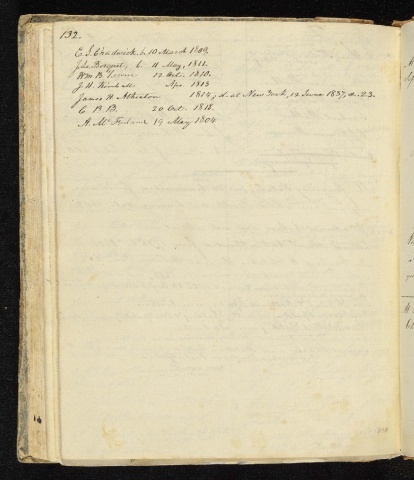 132.
E. S. Chadwick, b. 10 March 1809.
John b. 11 May, 1811.
Wm B. 12 Oct. 1810.
J. H. Kimball Apr. 1813
James H. 1814; d. at New York, 12 June 1837, æ. 23.
C. B. B. 20 Oct. 1818.
A. McFarland 19 May 1804